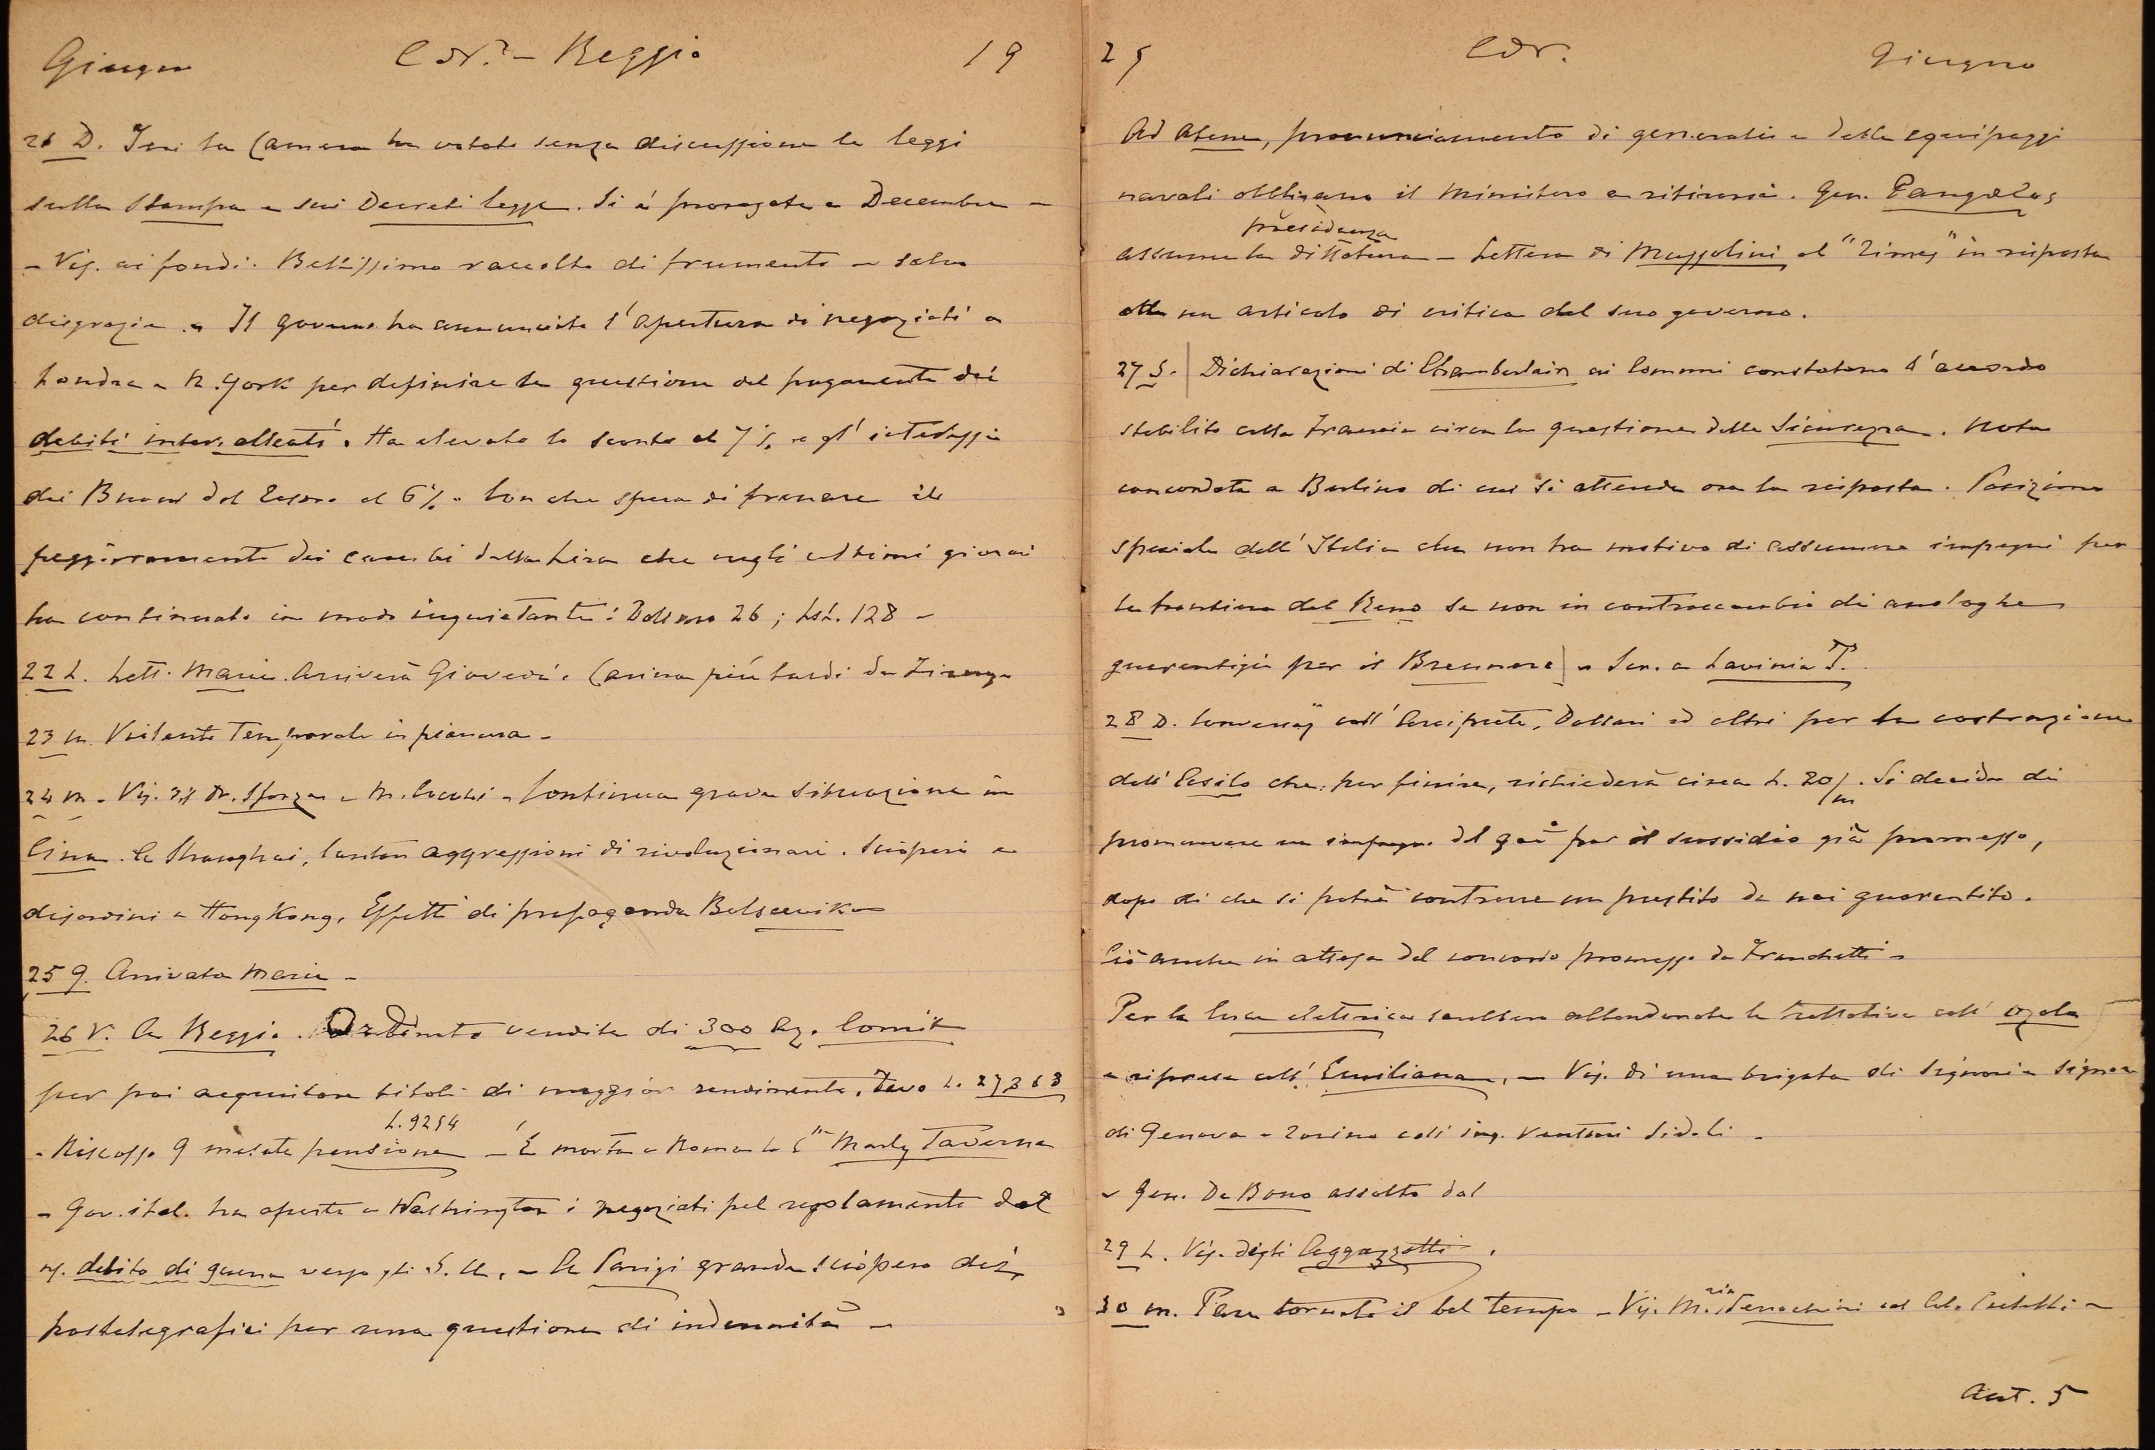 Giugno Cor.° - Reggio 19
21 D. Ieri la Camera ha votato senza discussione le leggi
sulla Stampa e sui Decreti legge. Si è prorogata a Decembre -
- Vis. ai fondi. Bellissimo raccolto di frumento - salvo
disgrazie. - Il governo ha annunciato l'apertura di negoziati a
Londra e N. York per definire la questione del pagamento dei
debiti inter-alleati. Ha elevato lo sconto al 7%, e gl'interessi
dei Buoni del Tesoro al 6%. Con che spera di frenare il
peggioramento dei cambi della Lira che negli ultimi giorni
ha continuato in modo inquietante: Dollaro 26; Lst. 128 -
22 L. Lett. Maria. Arriverà Giovedì. Carina più tardi da Firenze
23 M. Violento temporale in pianura -
24 M. - Vis. Dr. Sforza e M. Cocchi - Continua grave situazione in
Cina. A Shanghai, Canton aggressioni di rivoluzionari. Scioperi e
disordini a HongKong, Effetti di propaganda Bolscevika
25 G. Arrivata Maria -
26 V. A Reggio. Ordinato vendita di 300 Az. Comit
per poi acquistare titoli di maggior rendimento. Devo L. 27363
- Riscosso 9 mesate pensione L. 9254 - È morta a Roma la C.ssa Marly Taverna
- Gov. ital. ha aperto a Washington i negoziati pel regolamento del
ns. debito di guerra verso gli S. U. - A Parigi grande sciopero dei
postelegrafici per una questione di indennità -
25 Cor. Giugno
Ad Atene, pronunciamento di generali e delle equipaggi
navali obbligano il Ministero a ritirarsi. Gen. Pangalos
assume la presidenza dittatura - Lettera di Mussolini al "Times" in risposta
ad un articolo di critica del suo governo.
27 S. Dichiarazioni di Chamberlain ai Comuni constatano l'accordo
stabilito colla Francia circa la questione della Sicurezza. Nota
concordata a Berlino di cui si attende ora la risposta. Posizione
speciale dell'Italia che non ha motivo di assumere impegni per
la frontiera del Reno se non in contraccambio di analoghe
guarentigie per il Brennero - Scr. a Lavinia T.
28 D. Convers. coll'Arciprete, Dallari ed altri per la costruzione
dell'Asilo che, per finire, richiederà circa L. 20/m. Si decide di
promuovere un impegno del gov° per il sussidio già promesso,
dopo di che si potrà contrarre un prestito da noi guarentito.
Ciò anche in attesa del concorso promesso da Franchetti -
Per la luce elettrica sarebbero abbandonate le trattative coll' Ozola
e riprese coll' Emiliana. - Vis. di una brigata di signori e signore
di Genova e Torino coll' ing. Ventura Sidoli -
- Gen. De Bono assolto dal
29 L. Vis. degli Aggazzotti.
30 M. Pare tornato il bel tempo - Vis. M.ria
Aut. 5